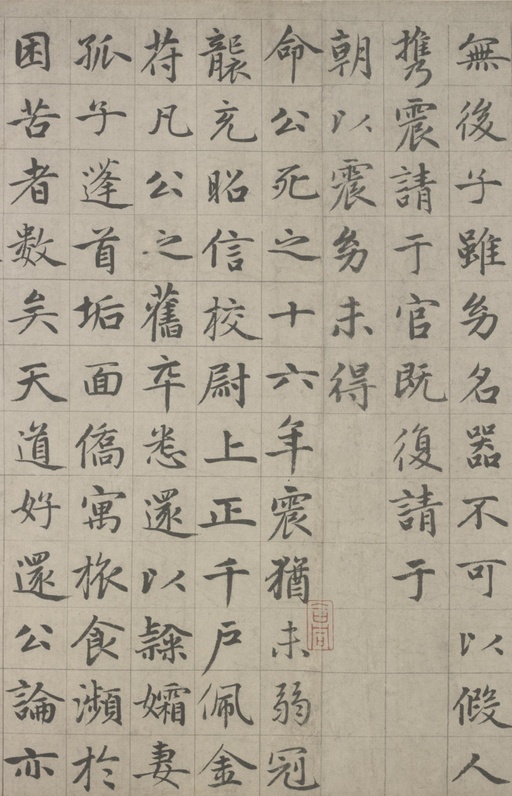 無後子雖㓜名器不可以假人
携震請于官既復請于
朝以震㓜未得
命公死之十六年震猶未弱冠
襲充昭信校尉上正千戶佩金
苻凡公之舊卒悉還以隸孀妻
孤子蓬首垢面僑寓旅食瀕於
困苦者數矣天道好還公論亦